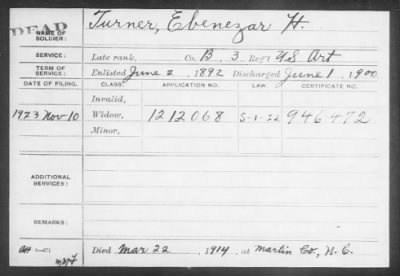 DEAD
NAME OF SOLDIER: Turner, Ebenezar H.
SERVICE: Late rank, Co. B, 3 Regt US Art
TERM OF SERVICE: Enlisted June 2, 1892 Discharged June 1, 1900
DATE OF FILING. CLASS. APPLICATION NO. LAW. CERTIFICATE NO.
Invalid,
1923 Nov 10 Widow, 1212068 S-1-22 946472
Minor,
ADDITIONAL SERVICES:
REMARKS:
Died Mar 22, 1914, at Martin Co, N. C.